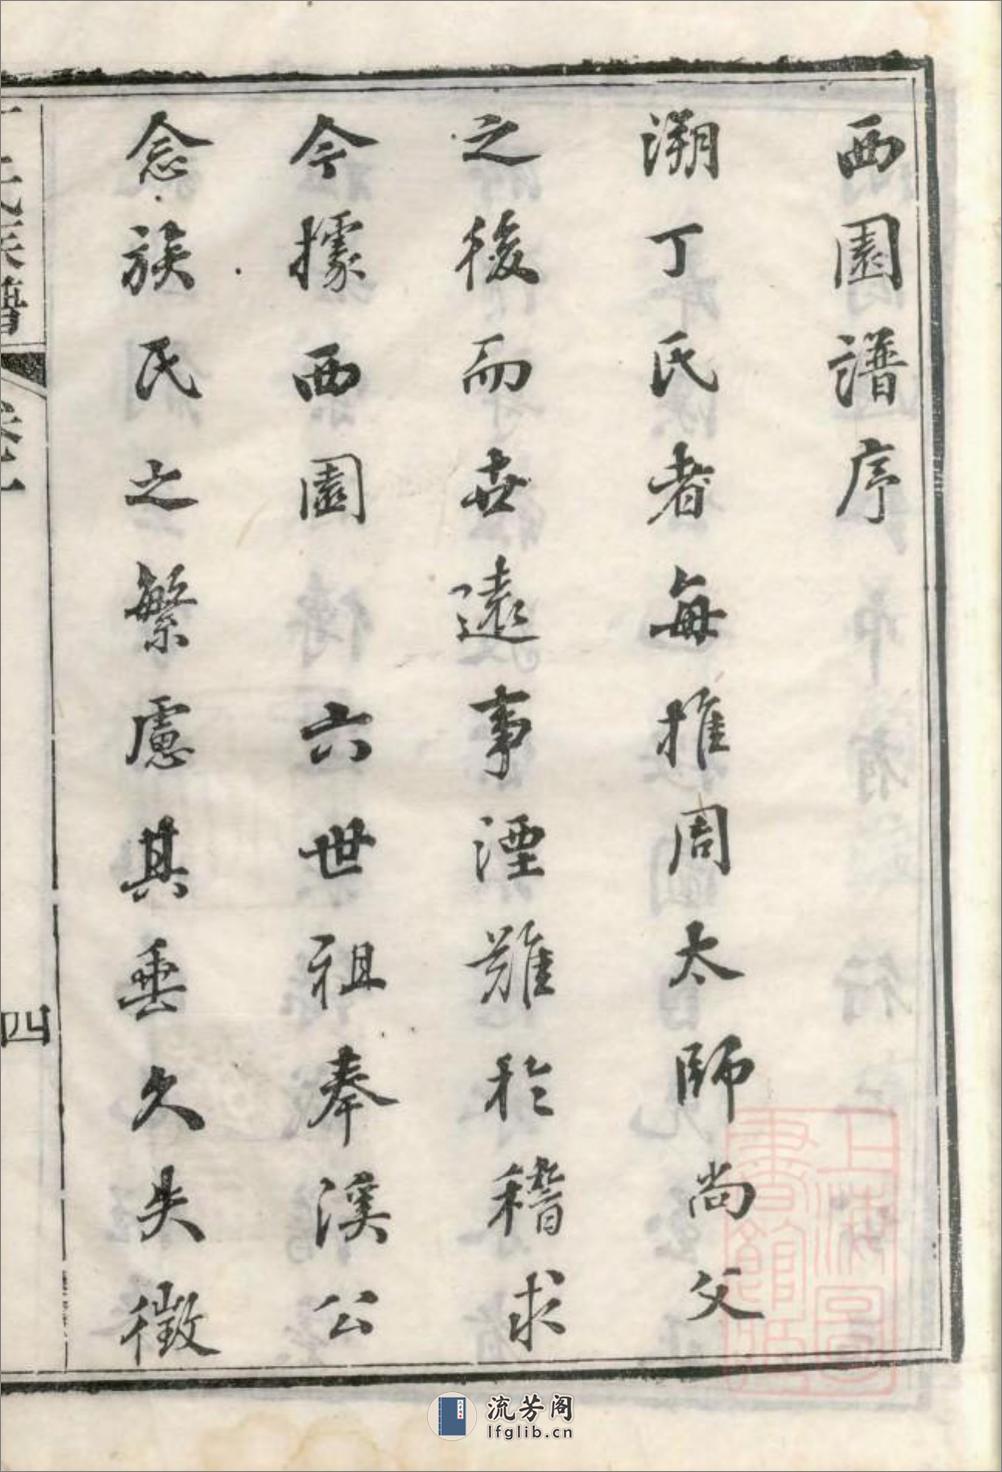 西園譜序
溯丁氏者每推周太師尚父
之後而世遠事湮難於稽求
今據西園六世祖奉溪公
念族氏之繁慮其垂久失徵
丁氏族譜
卷一
四
上海圖書館藏
流芳阁
lfglib.cn